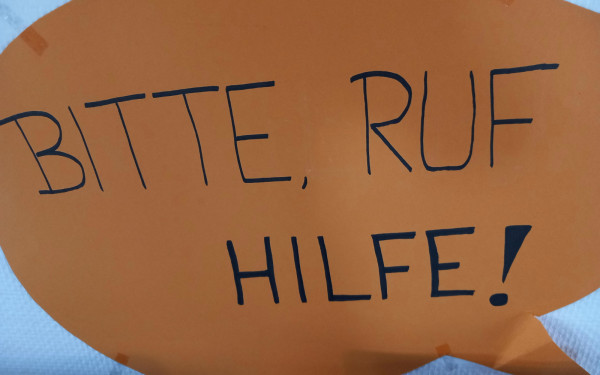 BITTE, RUF
HILFE!